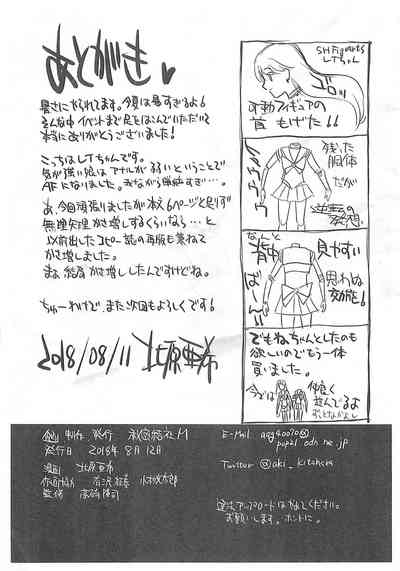 あとがき♥
暑さにやられてます。今夏は暑すぎるよ！
そんな中イベントまで足をはこんでいただいて
本当にありがとうございました！
こっちはLTちゃんです。
気が強い娘はアナルが弱いということで
AFになりました。我ながら単純すぎ…。
あ、今回頑張りましたが本文6ページと足りず
無理矢理かさ増しするくらいなら…と
以前出したコピー誌の再版も兼ねて
かさ増しました。
まぁ結局かさ増ししたんですけどね。
ちゅーわけで、また次回もよろしくです！
2018/08/11 北原亜希
SHFiguarts
LTちゃん
可動フィギュアの
首もげた!!
残った
胴体
だが
逆転の
発想。
なんと
背中
見やすい
ばーん
思わぬ
効能!
でもねちゃんとしたのも
欲しいのでもう一体
買いました。
今では
仲良く
並んでるよ
企画 制作 発行 秘密結社M
発行日 2018年8月12日
漫画 北原亜希
E-Mail
Twitter @aki_kitahara
違法アップロードはやめてください。
お願いします。ホントに。